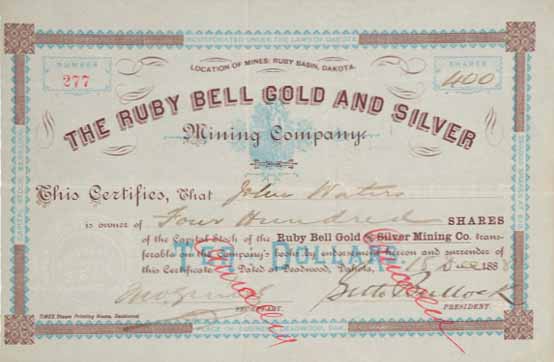 INCORPORATED UNDER THE LAWS OF DAKOTA
NUMBER
277
LOCATION OF MINES: RUBY BASIN, DAKOTA.
SHARES
400
THE RUBY BELL GOLD AND SILVER
Mining Company
This Certifies, That John Waters
is owner of Four Hundred SHARES
of the Capital Stock of the Ruby Bell Gold & Silver Mining Co. trans-
ferable on the Company's books on endorsement hereon and surrender of
this Certificate. Dated at Deadwood, Dakota, 188
TEN DOLLARS
Cancelled
Cancelled
Seth Bullock
SECRETARY.
PRESIDENT.
TIMES Steam Printing House, Deadwood